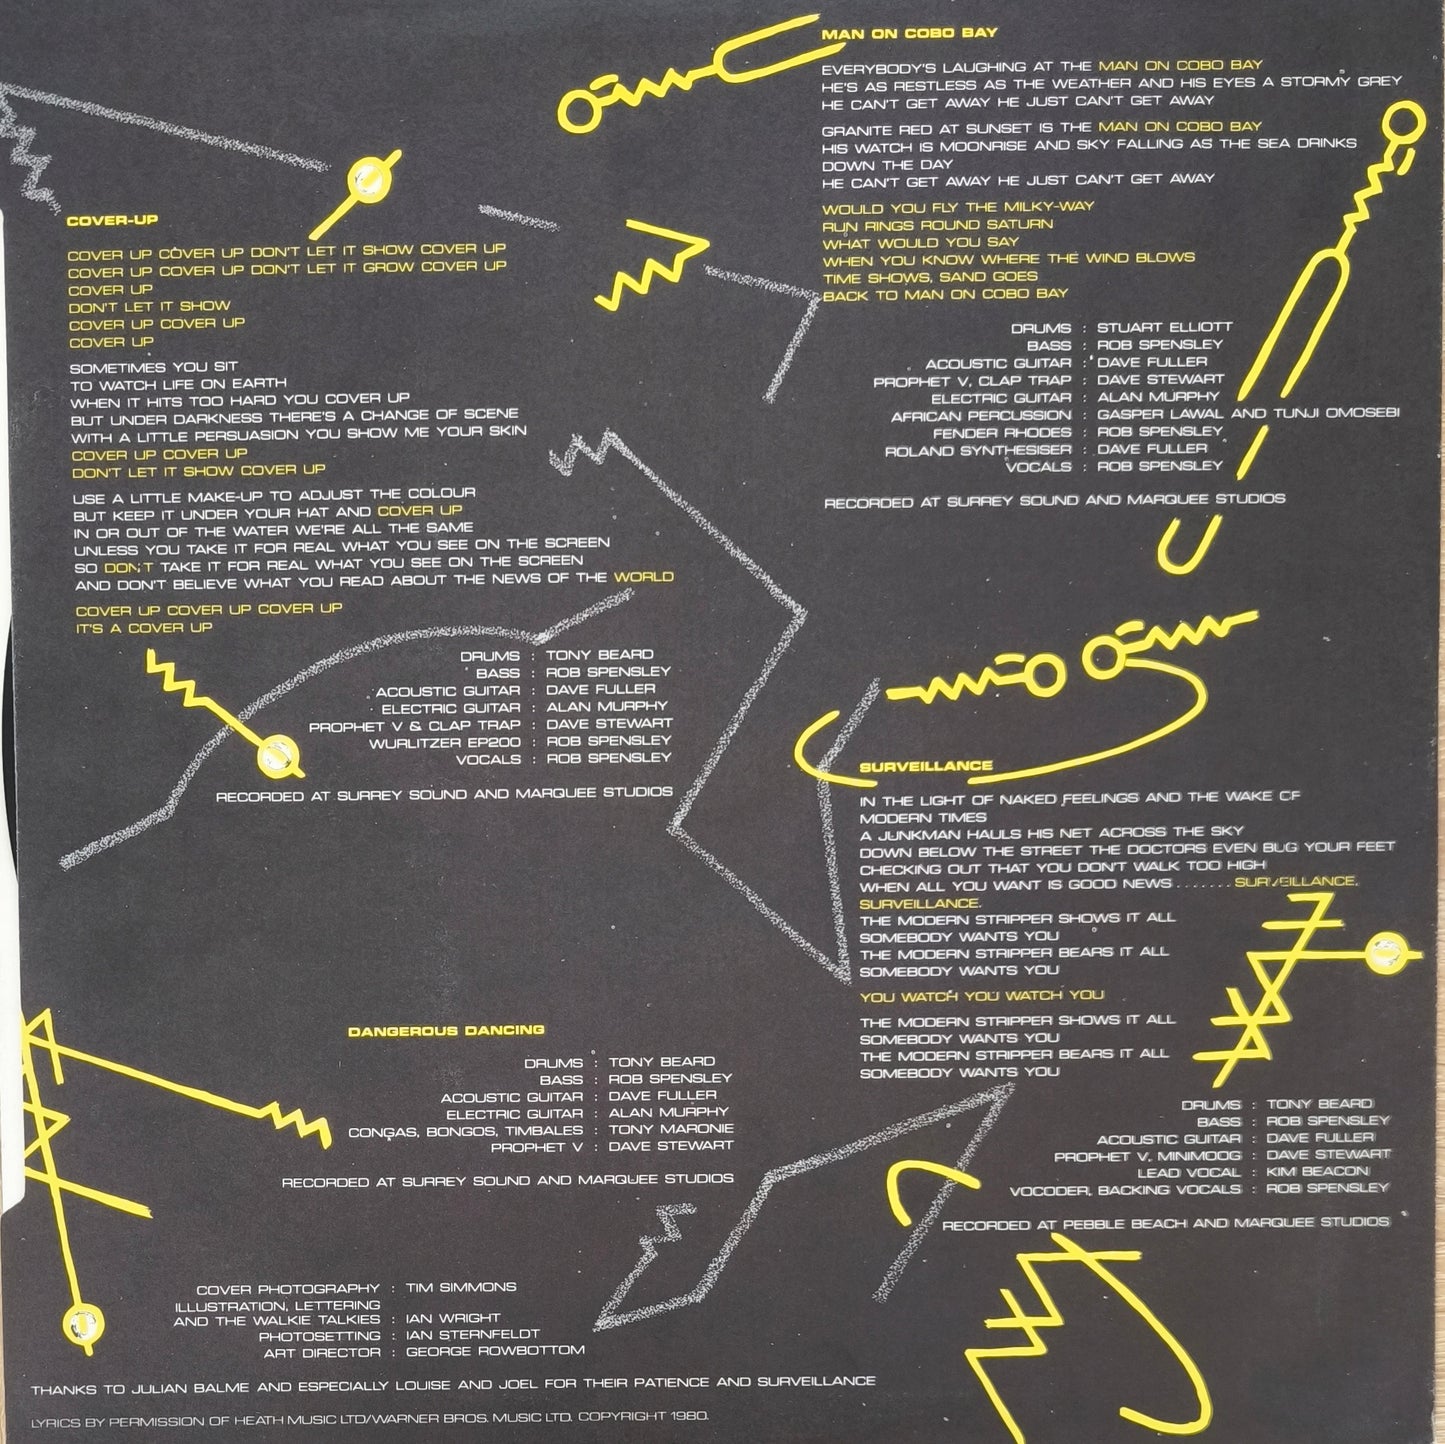 COVER-UP
COVER UP COVER UP DON'T LET IT SHOW COVER UP
COVER UP COVER UP DON'T LET IT GROW COVER UP
COVER UP
DON'T LET IT SHOW
COVER UP COVER UP
COVER UP
SOMETIMES YOU SIT
TO WATCH LIFE ON EARTH
WHEN IT HITS TOO HARD YOU COVER UP
BUT UNDER DARKNESS THERE'S A CHANGE OF SCENE
WITH A LITTLE PERSUASION YOU SHOW ME YOUR SKIN
COVER UP COVER UP
DON'T LET IT SHOW COVER UP
USE A LITTLE MAKE-UP TO ADJUST THE COLOUR
BUT KEEP IT UNDER YOUR HAT AND COVER UP
IN OR OUT OF THE WATER WE'RE ALL THE SAME
UNLESS YOU TAKE IT FOR REAL WHAT YOU SEE ON THE SCREEN
SO DON;T TAKE IT FOR REAL WHAT YOU SEE ON THE SCREEN
AND DON'T BELIEVE WHAT YOU READ ABOUT THE NEWS OF THE WORLD
COVER UP COVER UP COVER UP
IT'S A COVER UP
DRUMS : TONY BEARD
BASS : ROB SPENSLEY
ACOUSTIC GUITAR : DAVE FULLER
ELECTRIC GUITAR : ALAN MURPHY
PROPHET V & CLAP TRAP : DAVE STEWART
WURLITZER EP200 : ROB SPENSLEY
VOCALS : ROB SPENSLEY
RECORDED AT SURREY SOUND AND MARQUEE STUDIOS
DANGEROUS DANCING
DRUMS : TONY BEARD
BASS : ROB SPENSLEY
ACOUSTIC GUITAR : DAVE FULLER
ELECTRIC GUITAR : ALAN MURPHY
CONGAS, BONGOS, TIMBALES : TONY MARONIE
PROPHET V : DAVE STEWART
RECORDED AT SURREY SOUND AND MARQUEE STUDIOS
MAN ON COBO BAY
EVERYBODY'S LAUGHING AT THE MAN ON COBO BAY
HE'S AS RESTLESS AS THE WEATHER AND HIS EYES A STORMY GREY
HE CAN'T GET AWAY HE JUST CAN'T GET AWAY
GRANITE RED AT SUNSET IS THE MAN ON COBO BAY
HIS WATCH IS MOONRISE AND SKY FALLING AS THE SEA DRINKS
DOWN THE DAY
HE CAN'T GET AWAY HE JUST CAN'T GET AWAY
WOULD YOU FLY THE MILKY-WAY
RUN RINGS ROUND SATURN
WHAT WOULD YOU SAY
WHEN YOU KNOW WHERE THE WIND BLOWS
TIME SHOWS, SAND GOES
BACK TO MAN ON COBO BAY
DRUMS : STUART ELLIOTT
BASS : ROB SPENSLEY
ACOUSTIC GUITAR : DAVE FULLER
PROPHET V, CLAP TRAP : DAVE STEWART
ELECTRIC GUITAR : ALAN MURPHY
AFRICAN PERCUSSION : GASPER LAWAL AND TUNJI OMOSEBI
FENDER RHODES : ROB SPENSLEY
ROLAND SYNTHESISER : DAVE FULLER
VOCALS : ROB SPENSLEY
RECORDED AT SURREY SOUND AND MARQUEE STUDIOS
SURVEILLANCE
IN THE LIGHT OF NAKED FEELINGS AND THE WAKE OF
MODERN TIMES
A JUNKMAN HAULS HIS NET ACROSS THE SKY
DOWN BELOW THE STREET THE DOCTORS EVEN BUG YOUR FEET
CHECKING OUT THAT YOU DON'T WALK TOO HIGH
WHEN ALL YOU WANT IS GOOD NEWS ....... SURVEILLANCE,
SURVEILLANCE.
THE MODERN STRIPPER SHOWS IT ALL
SOMEBODY WANTS YOU
THE MODERN STRIPPER BEARS IT ALL
SOMEBODY WANTS YOU
YOU WATCH YOU WATCH YOU
THE MODERN STRIPPER SHOWS IT ALL
SOMEBODY WANTS YOU
THE MODERN STRIPPER BEARS IT ALL
SOMEBODY WANTS YOU
DRUMS : TONY BEARD
BASS : ROB SPENSLEY
ACOUSTIC GUITAR : DAVE FULLER
PROPHET V, MINIMOOG : DAVE STEWART
LEAD VOCAL : KIM BEACON
VOCODER, BACKING VOCALS : ROB SPENSLEY
RECORDED AT PEBBLE BEACH AND MARQUEE STUDIOS
COVER PHOTOGRAPHY : TIM SIMMONS
ILLUSTRATION, LETTERING
AND THE WALKIE TALKIES : IAN WRIGHT
PHOTOSETTING : IAN STERNFELDT
ART DIRECTOR : GEORGE ROWBOTTOM
THANKS TO JULIAN BALME AND ESPECIALLY LOUISE AND JOEL FOR THEIR PATIENCE AND SURVEILLANCE
LYRICS BY PERMISSION OF HEATH MUSIC LTD/WARNER BROS. MUSIC LTD. COPYRIGHT 1980.